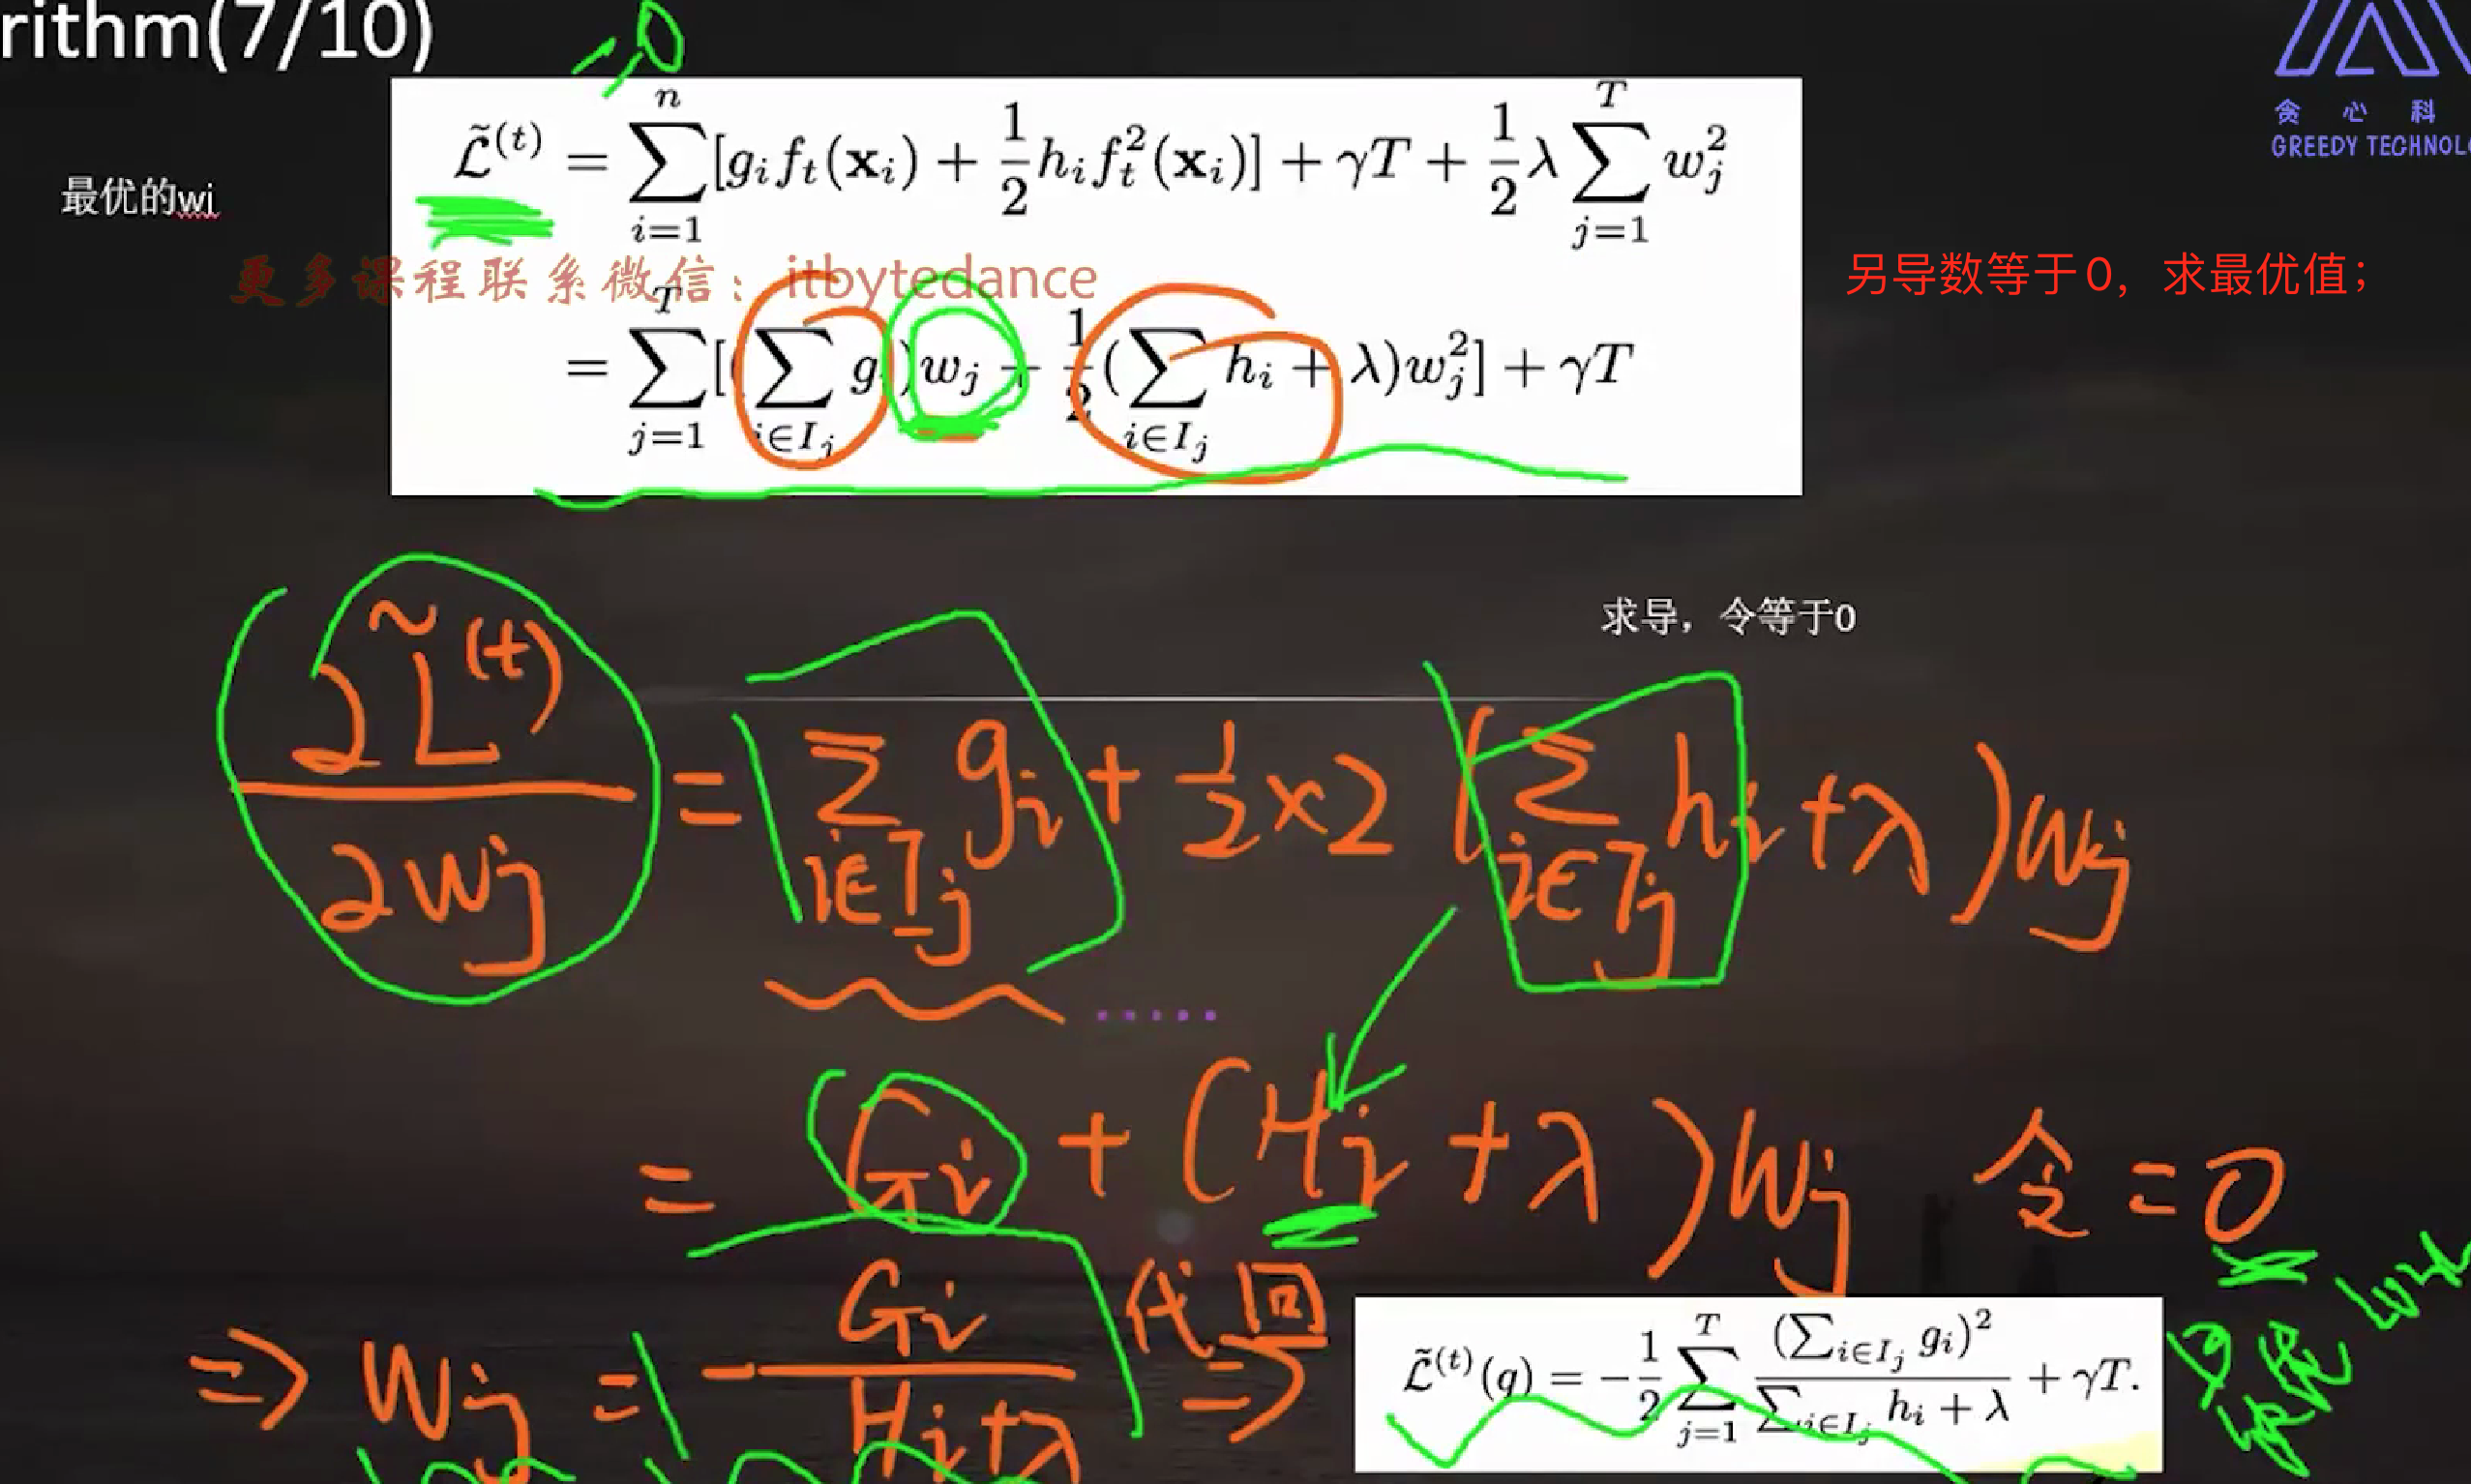 rithm(7/10)
=0
贪 心 科
GREEDY TECHNOL
最优的wj
\tilde{\mathcal{L}}^{(t)} = \sum_{i=1}^{n} [g_i f_t(\mathbf{x}_i) + \frac{1}{2} h_i f_t^2(\mathbf{x}_i)] + \gamma T + \frac{1}{2} \lambda \sum_{j=1}^{T} w_j^2
更多课程联系微信：itbytedance
另导数等于0，求最优值；
= \sum_{j=1}^{T} [(\sum_{i \in I_j} g_i) w_j + \frac{1}{2} (\sum_{i \in I_j} h_i + \lambda) w_j^2] + \gamma T
求导，令等于0
\frac{\partial \tilde{L}^{(t)}}{\partial w_j} = \sum_{i \in I_j} g_i + \frac{1}{2} \times 2 (\sum_{i \in I_j} h_i + \lambda) w_j
= G_i + (H_i + \lambda) w_j 令 = 0
⇒ w_j = -\frac{G_i}{H_i + \lambda} 代回 ⇒
\tilde{\mathcal{L}}^{(t)}(g) = -\frac{1}{2} \sum_{j=1}^{T} \frac{(\sum_{i \in I_j} g_i)^2}{\sum_{i \in I_j} h_i + \lambda} + \gamma T.